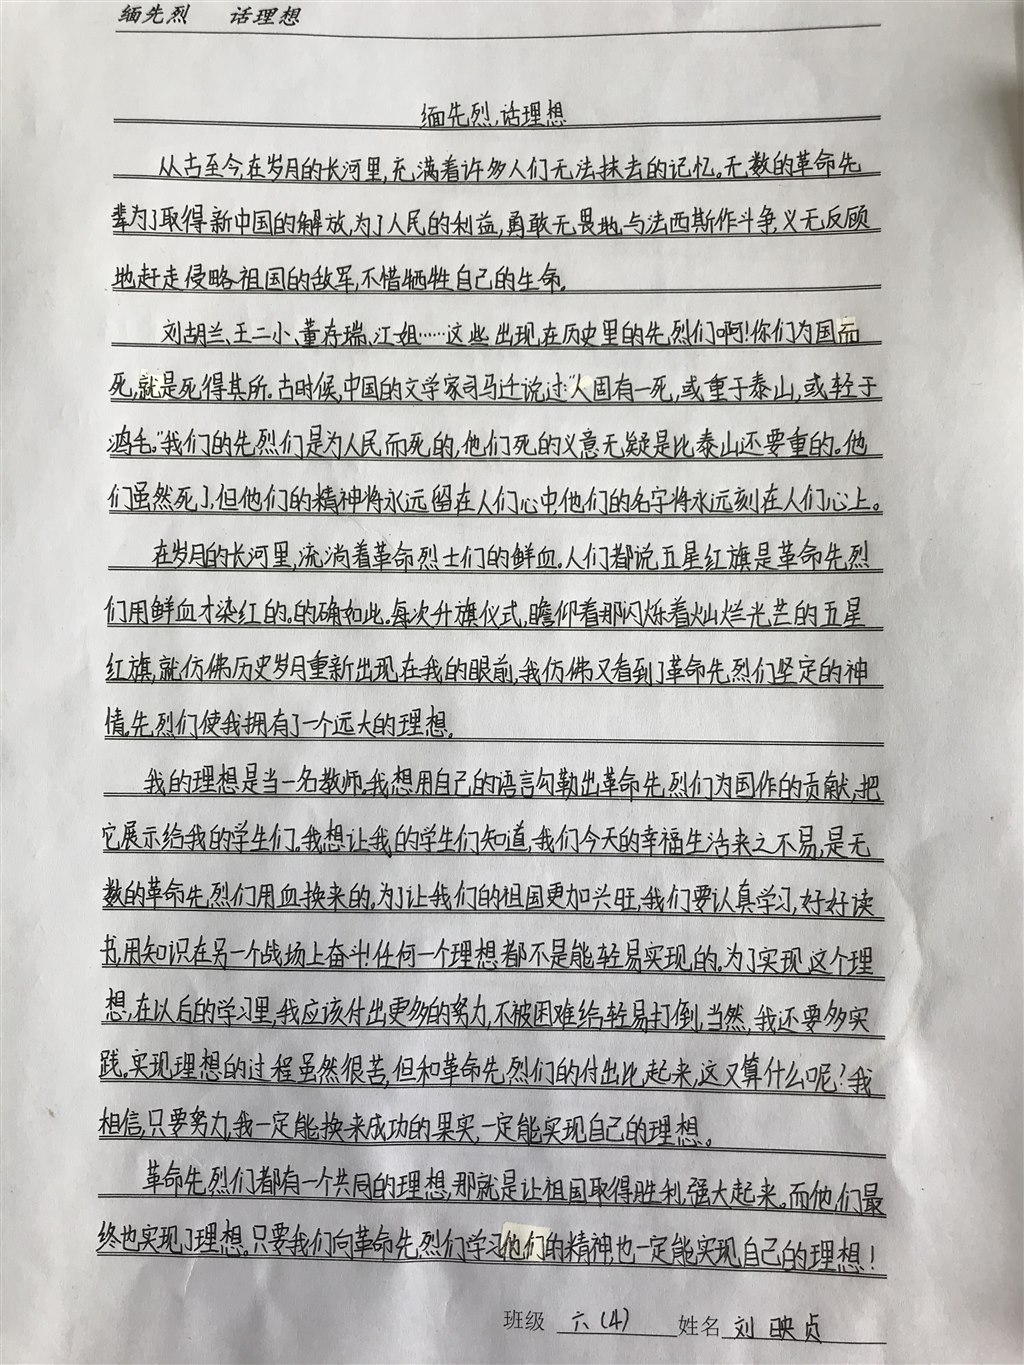 缅先烈 话理想
缅先烈,话理想
从古至今,在岁月的长河里,充满着许多人们无法抹去的记忆。无数的革命先
辈为了取得新中国的解放,为了人民的利益,勇敢无畏地与法西斯作斗争,义无反顾
地赶走侵略祖国的敌军,不惜牺牲自己的生命。
刘胡兰、王二小、董存瑞、江姐……这些出现在历史里的先烈们啊!你们为国而
死,就是死得其所。古时候,中国的文学家司马迁说过:“人固有一死,或重于泰山,或轻于
鸿毛。”我们的先烈们是为人民而死的,他们死的义意无疑是比泰山还要重的。他
们虽然死了,但他们的精神将永远留在人们心中,他们的名字将永远刻在人们心上。
在岁月的长河里,流淌着革命烈士们的鲜血。人们都说五星红旗是革命先烈
们用鲜血才染红的。的确如此。每次升旗仪式,瞻仰着那闪烁着灿烂光芒的五星
红旗,就仿佛历史岁月重新出现在我的眼前,我仿佛又看到了革命先烈们坚定的神
情。先烈们使我拥有了一个远大的理想。
我的理想是当一名教师。我想用自己的语言勾勒出革命先烈们为国作的贡献,把
它展示给我的学生们。我想让我的学生们知道,我们今天的幸福生活来之不易,是无
数的革命先烈们用血换来的。为了让我们的祖国更加兴旺,我们要认真学习,好好读
书,用知识在另一个战场上奋斗!任何一个理想都不是能轻易实现的。为了实现这个理
想,在以后的学习里,我应该付出更多的努力,不被困难给轻易打倒,当然,我还要多实
践。实现理想的过程虽然很苦,但和革命先烈们的付出比起来,这又算什么呢?我
相信,只要努力,我一定能换来成功的果实,一定能实现自己的理想。
革命先烈们都有一个共同的理想,那就是让祖国取得胜利,强大起来。而他们最
终也实现了理想。只要我们向革命先烈们学习他们的精神,也一定能实现自己的理想!
班级 六(4) 姓名 刘映贞